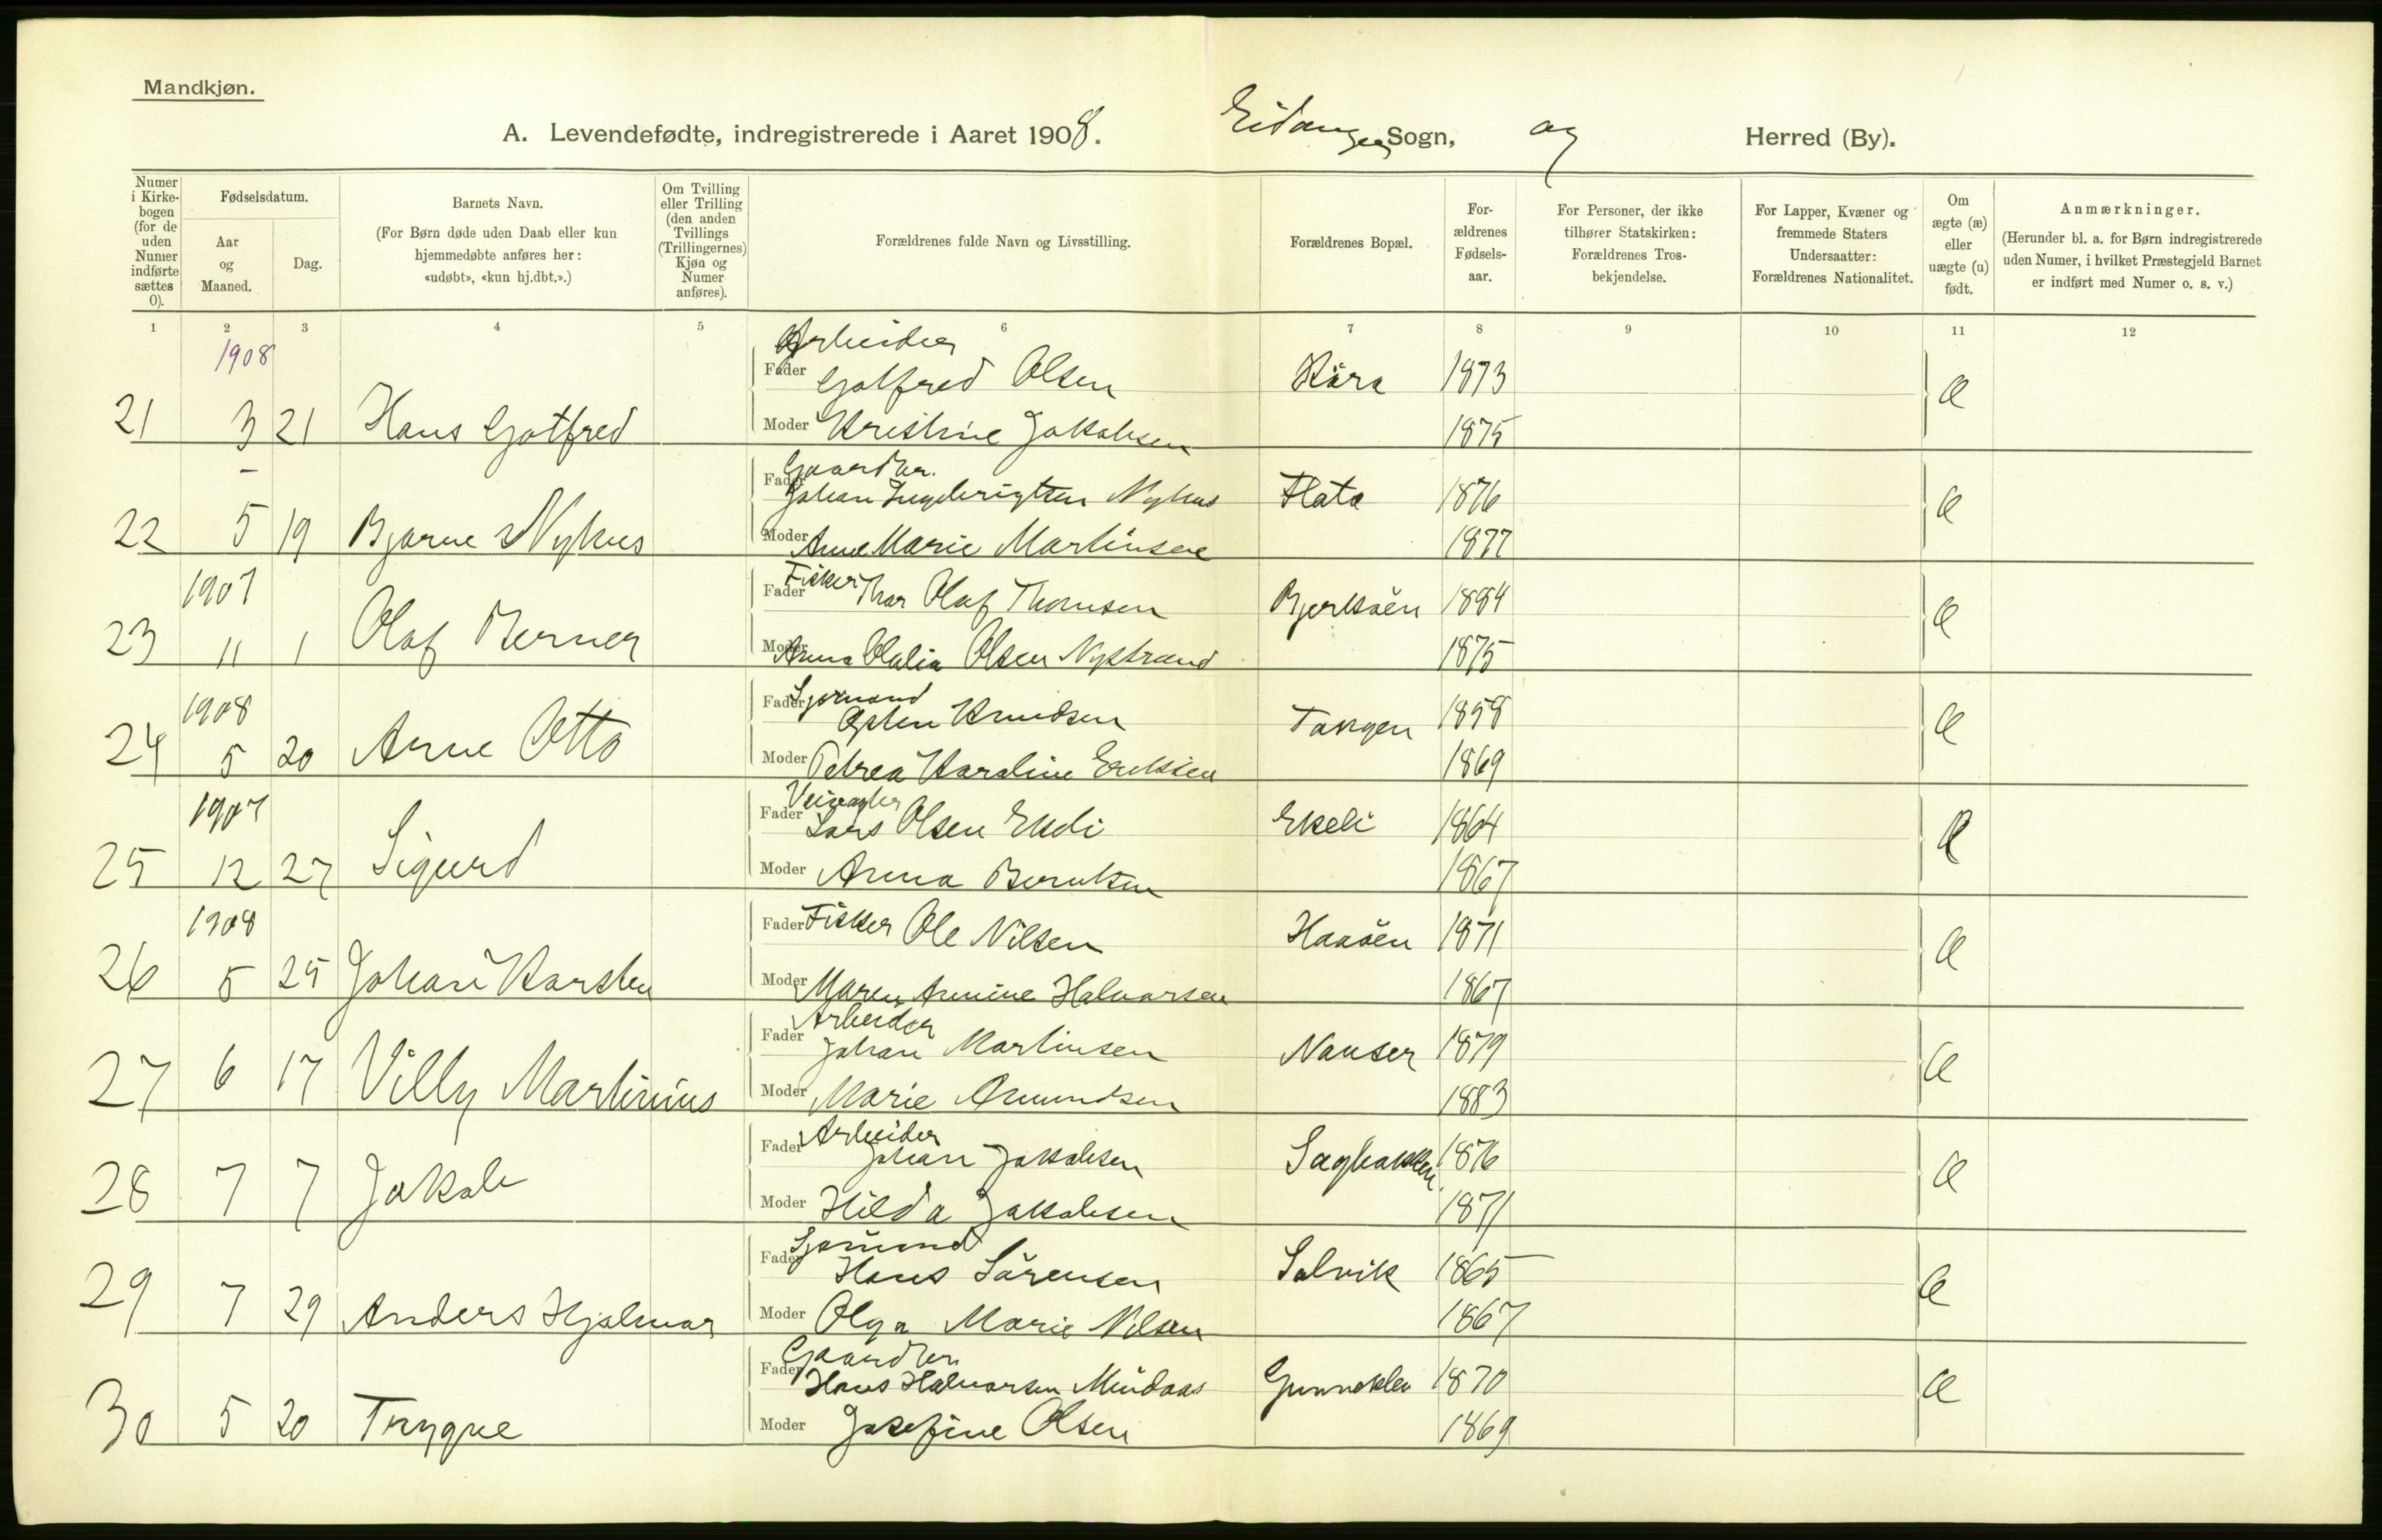 Mandkjøn.
A. Levendefødte, indregistrerede i Aaret 1908. Eidanger Sogn, og Herred (By).
Numer i Kirke-bogen (for de uden Numer indførte sættes 0).
Fødselsdatum.
Aar og Maaned.
Dag.
Barnets Navn.
(For Børn døde uden Daab eller kun hjemmedøbte anføres her: «udøbt», «kun hj.dbt.».)
Om Tvilling eller Trilling (den anden Tvillings (Trillingernes) Kjøn og Numer anføres).
Forældrenes fulde Navn og Livsstilling.
Forældrenes Bopæl.
For-ældrenes Fødsels-aar.
For Personer, der ikke tilhører Statskirken: Forældrenes Tros-bekjendelse.
For Lapper, Kvæner og fremmede Staters Undersaatter: Forældrenes Nationalitet.
Om ægte (æ) eller uægte (u) født.
Anmærkninger.
(Herunder bl. a. for Børn indregistrerede uden Numer, i hvilket Præstegjeld Barnet er indført med Numer o. s. v.)
1 2 3 4 5 6 7 8 9 10 11 12
1908
Arbeider
Fader Gotfred Olsen Kåra 1873 æ
21 3 21 Hans Gotfred Moder Kristine Jakobsen 1875
Gaardbr.
Fader Johan Ingebrigtsen Nyhus Flata 1876 æ
22 5 19 Bjarne Nyhus Moder Anne Marie Martinsen 1877
1907
Fader Fisker Thor Olaf Thomsen Bjerkøen 1884 æ
23 11 1 Olaf Berner Moder Anna Olalia Olsen Nystrand 1875
1908
Sjømand
Fader Østen Knudsen Tangen 1858 æ
24 5 20 Arne Otto Moder Petrea Karoline Eriksen 1869
1907
Veivogter
Fader Lars Olsen Ekeli Ekeli 1864 æ
25 12 27 Sigurd Moder Anna Berntsen 1867
1908
Fader Fisker Ole Nilsen Haaøen 1871 æ
26 5 25 Johan Karsten Moder Maren Annine Halvorsen 1867
Arbeider
Fader Johan Martinsen Nauser 1879 æ
27 6 17 Villy Martinius Moder Marie Amundsen 1883
Arbeider
Fader Johan Jakobsen Sagbakken 1876 æ
28 7 7 Jakob Moder Hilda Jakobsen 1871
Sjømand
Fader Hans Sørensen Salvik 1865 æ
29 7 29 Anders Hjalmar Moder Olga Marie Nilsen 1867
Gaardbr.
Fader Hans Halvorsen Gunneklev 1870 æ
30 5 20 Trygve Moder Josefine Olsen 1869